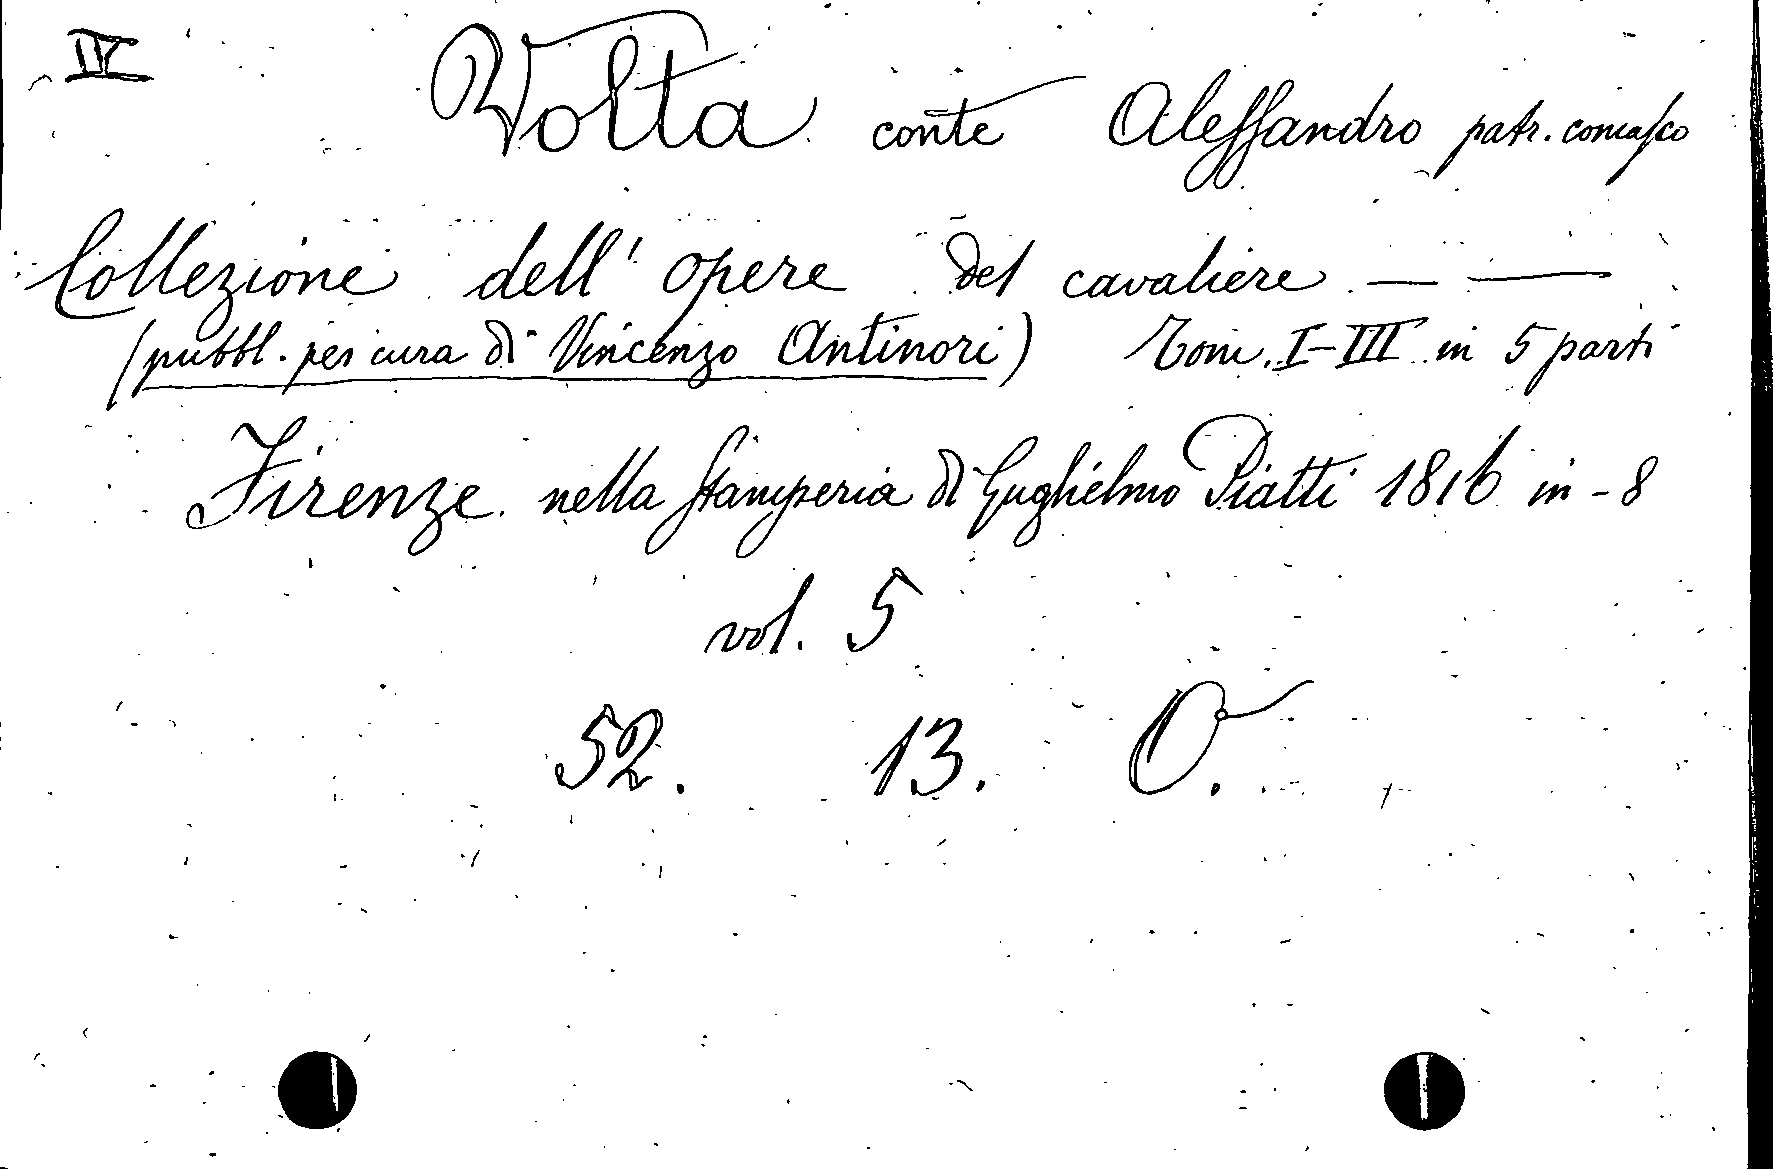 IV
Volta conte Alessandro patr. comasco
Collezione dell' opere del cavaliere — —
(pubbl. per cura di Vincenzo Antinori) Tom. I-III in 5 parti
Firenze nella stamperia di Guglielmo Piatti 1816 in-8
vol. 5
52. 13. O.